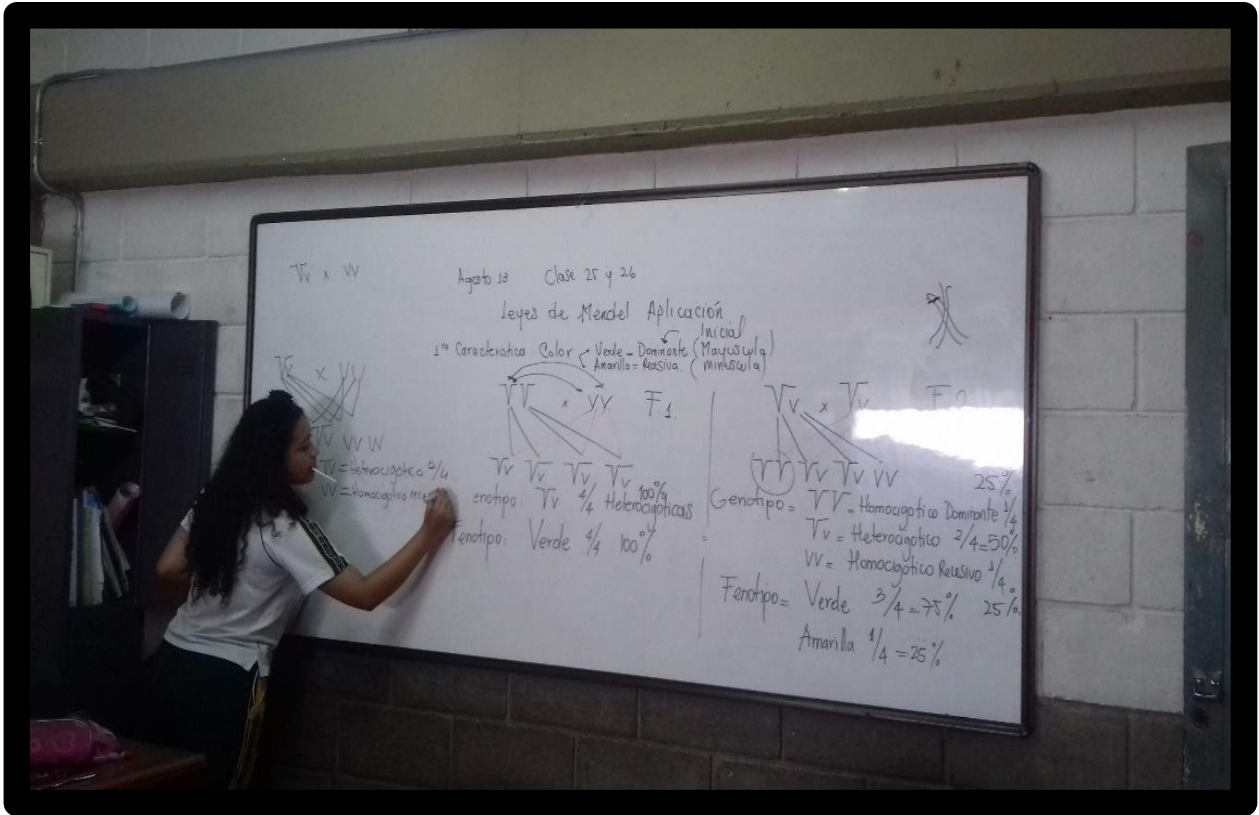 Vv x vv
Agosto 13 Clase 25 y 26
Leyes de Mendel Aplicación
Inicial
1ra Característica: Color
Verde = Dominante (Mayuscula)
Amarillo = Recesiva (minuscula)
Vv x vv
Vv vv vv
Vv = Heterocigotico 2/4
vv = Homocigotico
VV x vv F.1.
Vv Vv Vv Vv
enotipo: Vv 4/4 Heterocigoticas 100%
Fenotipo: Verde 4/4 100%
Vv x Vv F.2
VV Vv Vv vv
25%
Genotipo = VV = Homocigotico Dominante 1/4
Vv = Heterocigotico 2/4=50%
vv = Homocigotico Recesivo 1/4.
25%.
Fenotipo = Verde 3/4=75%
Amarilla 1/4 =25%